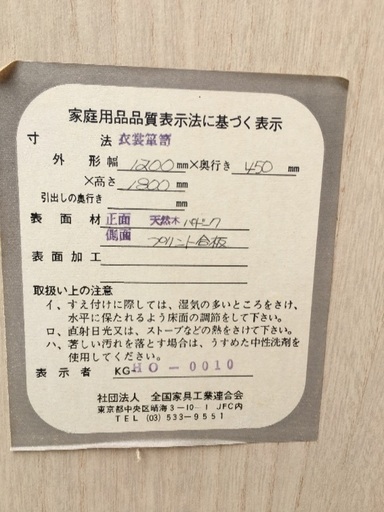 家庭用品品質表示法に基づく表示
寸法 衣裳箪笥
外形 幅 1200 mm × 奥行き 450 mm
×高さ 1800 mm
引出しの奥行き mm
表面材 正面 天然木 パドック
側面 プリント合板
表面加工
取扱い上の注意
イ、すえ付けに際しては、湿気の多いところをさけ、
水平に保たれるよう床面の調節をして下さい。
ロ、直射日光又は、ストーブなどの熱をさけて下さい。
ハ、著しい汚れを落とす場合は、うすめた中性洗剤を
使用してください。
表示者 KG HO-0010
社団法人 全国家具工業連合会
東京都中央区晴海3-10-1 JFC内
TEL (03)533-9551